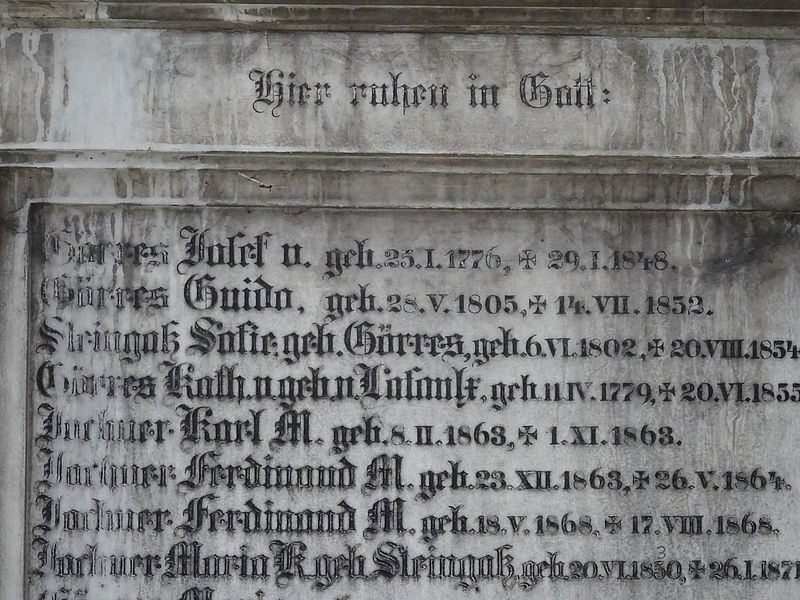 Hier ruhen in Gott:
Görres Josef v. geb. 25.I.1776, ✠ 29.I.1848.
Görres Guido, geb. 28.V.1805, ✠ 14.VII.1852.
Steingaß Sofie, geb. Görres, geb. 6.VI.1802, ✠ 20.VIII.1854
Görres Kath. v. geb. v. Lasaulx, geb. 11.IV.1779, ✠ 20.VI.1855
Jochner Karl M. geb. 8.II.1863, ✠ 1.XI.1863.
Jochner Ferdinand M. geb. 23.XII.1863, ✠ 26.V.1864.
Jochner Ferdinand M. geb. 18.V.1868, ✠ 17.VIII.1868.
Jochner Maria K. geb. Steingaß, geb. 20.VI.1830, ✠ 26.I.1871